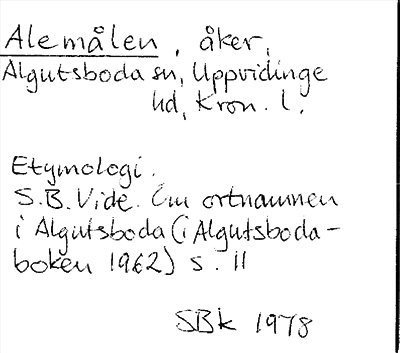 Alemålen, åker,
Algutsboda sn, Uppvidinge
hd, Kron. l.
Etymologi.
S.B. Vide. Om ortnamnen
i Algutsboda (i Algutsboda-
boken 1962) s. 11
SBk 1978